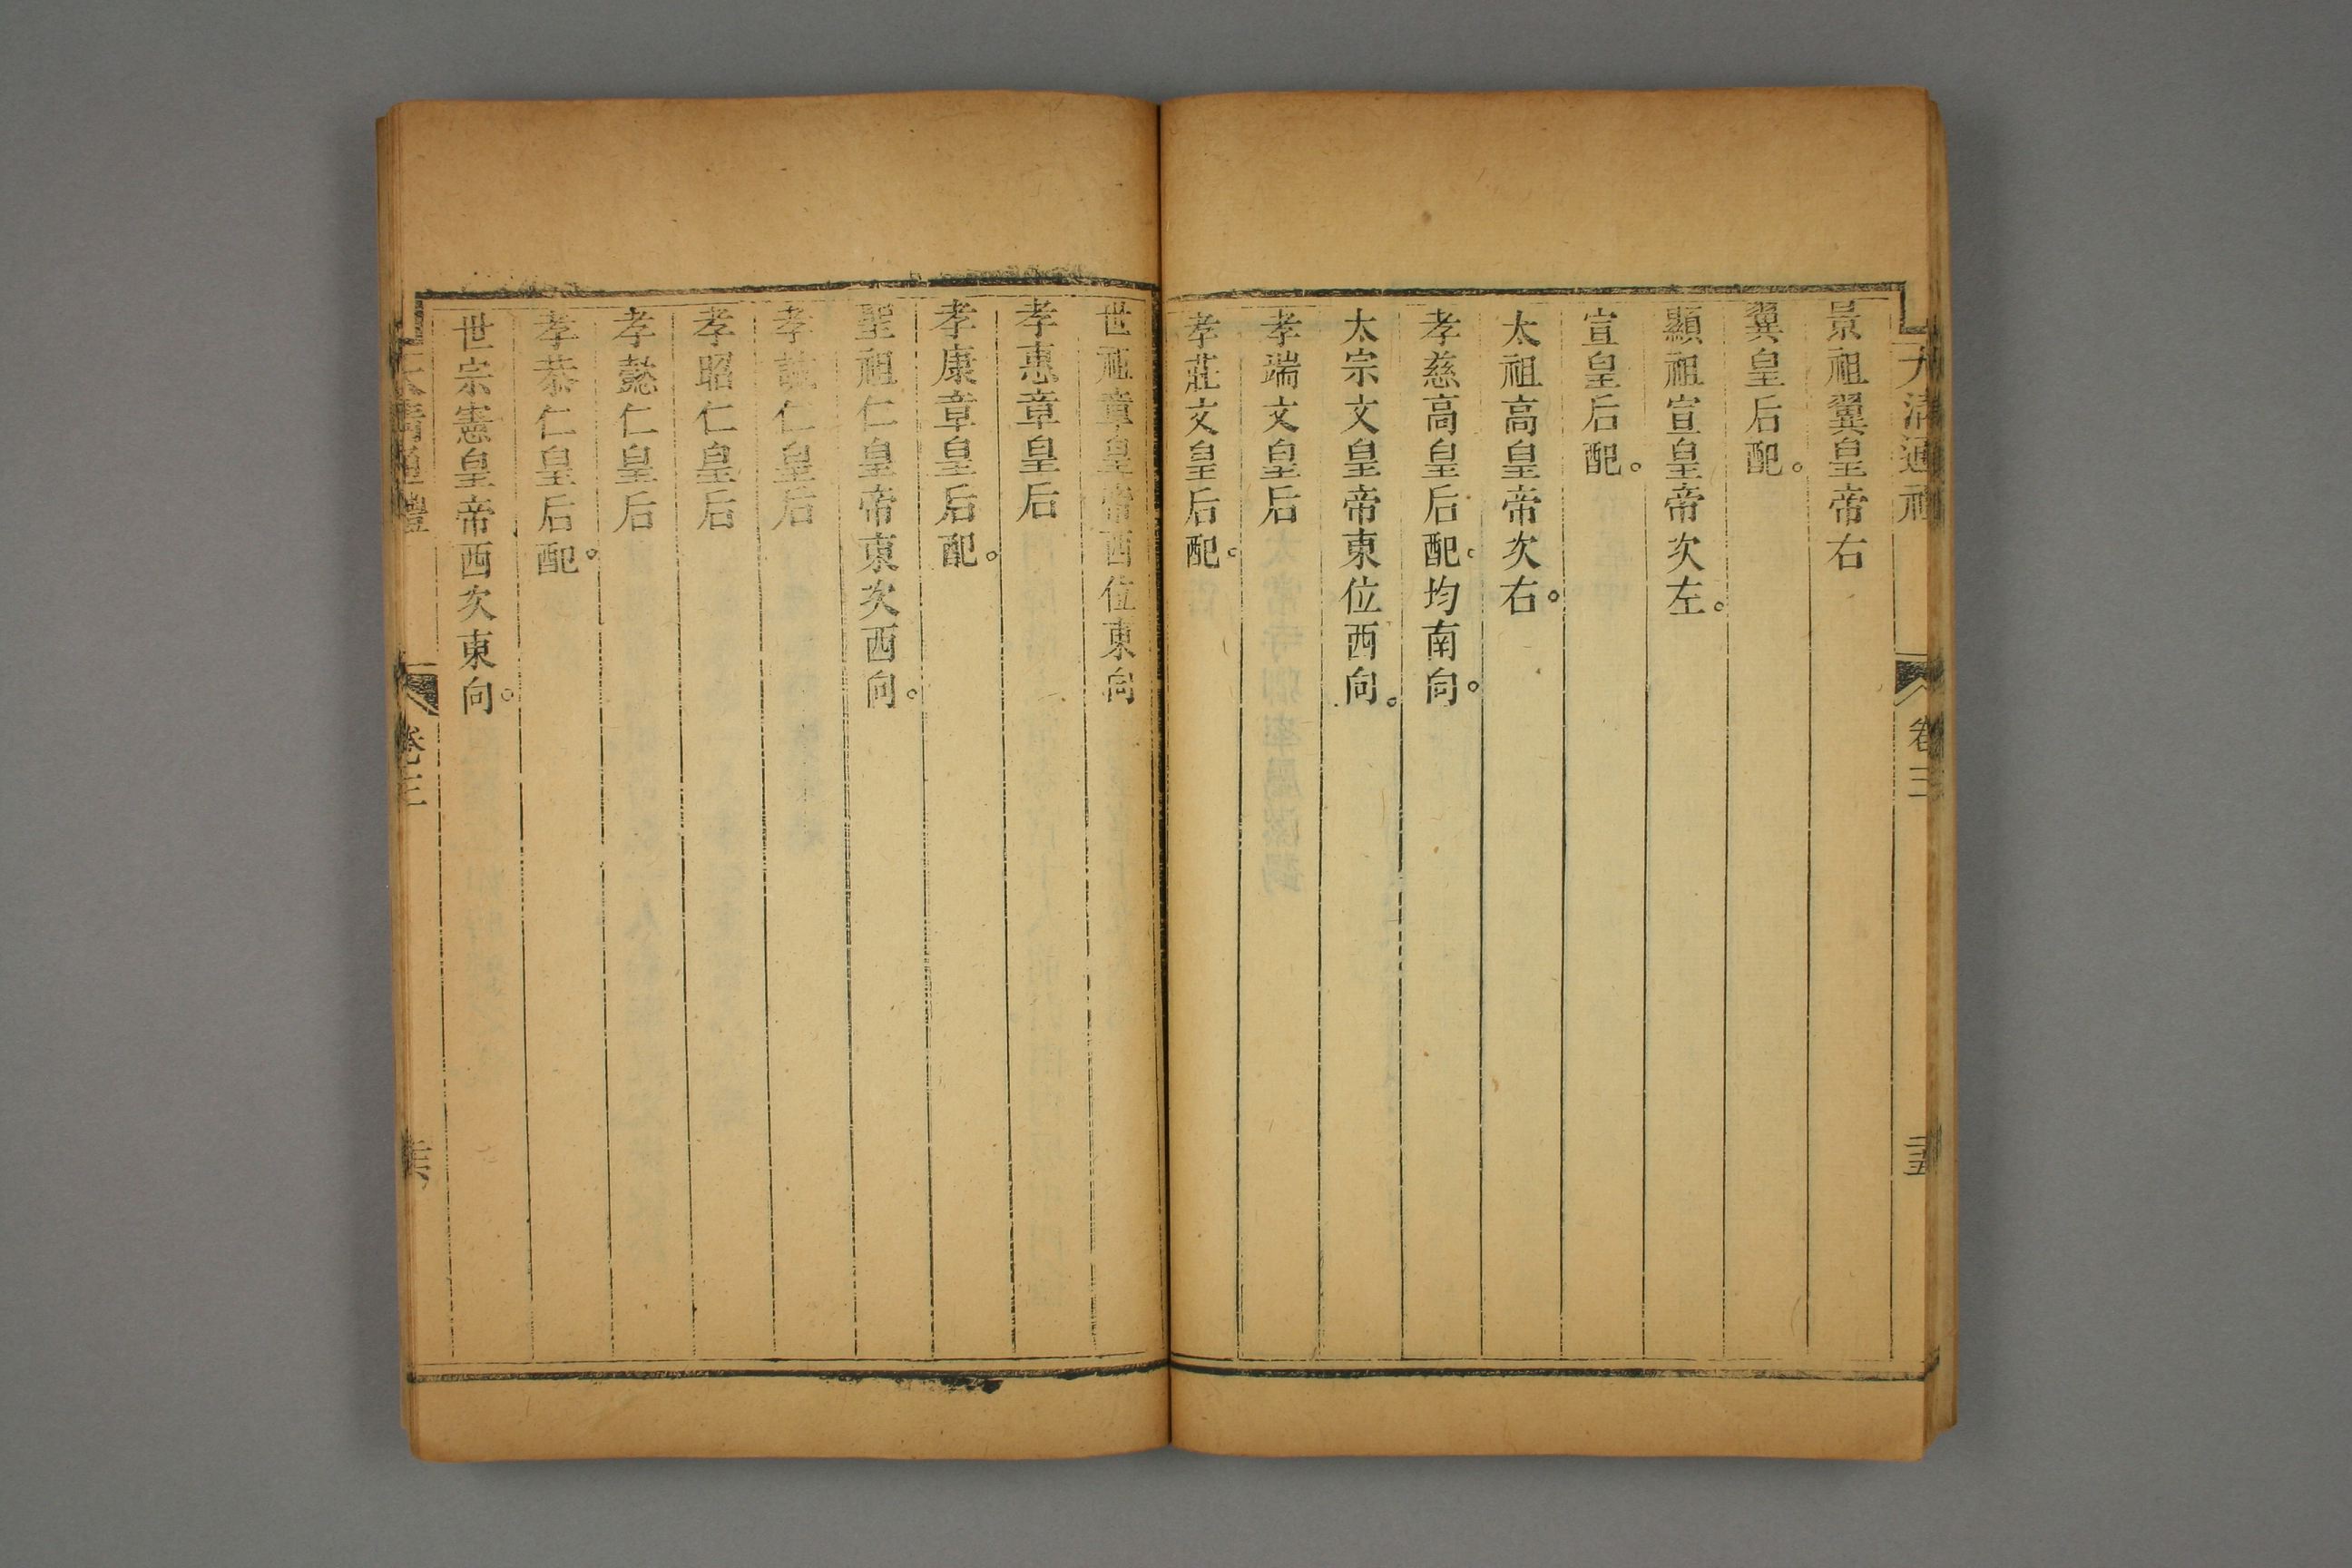 大清通禮 卷三 二十五
景祖翼皇帝右
翼皇后配。
顯祖宣皇帝次左。
宣皇后配。
太祖高皇帝次右。
孝慈高皇后配。均南向。
太宗文皇帝東位西向。
孝端文皇后
孝莊文皇后配。
世祖章皇帝西位東向
孝惠章皇后
孝康章皇后配。
聖祖仁皇帝東次西向。
孝誠仁皇后
孝昭仁皇后
孝懿仁皇后
孝恭仁皇后配。
世宗憲皇帝西次東向。
大清通禮 卷三